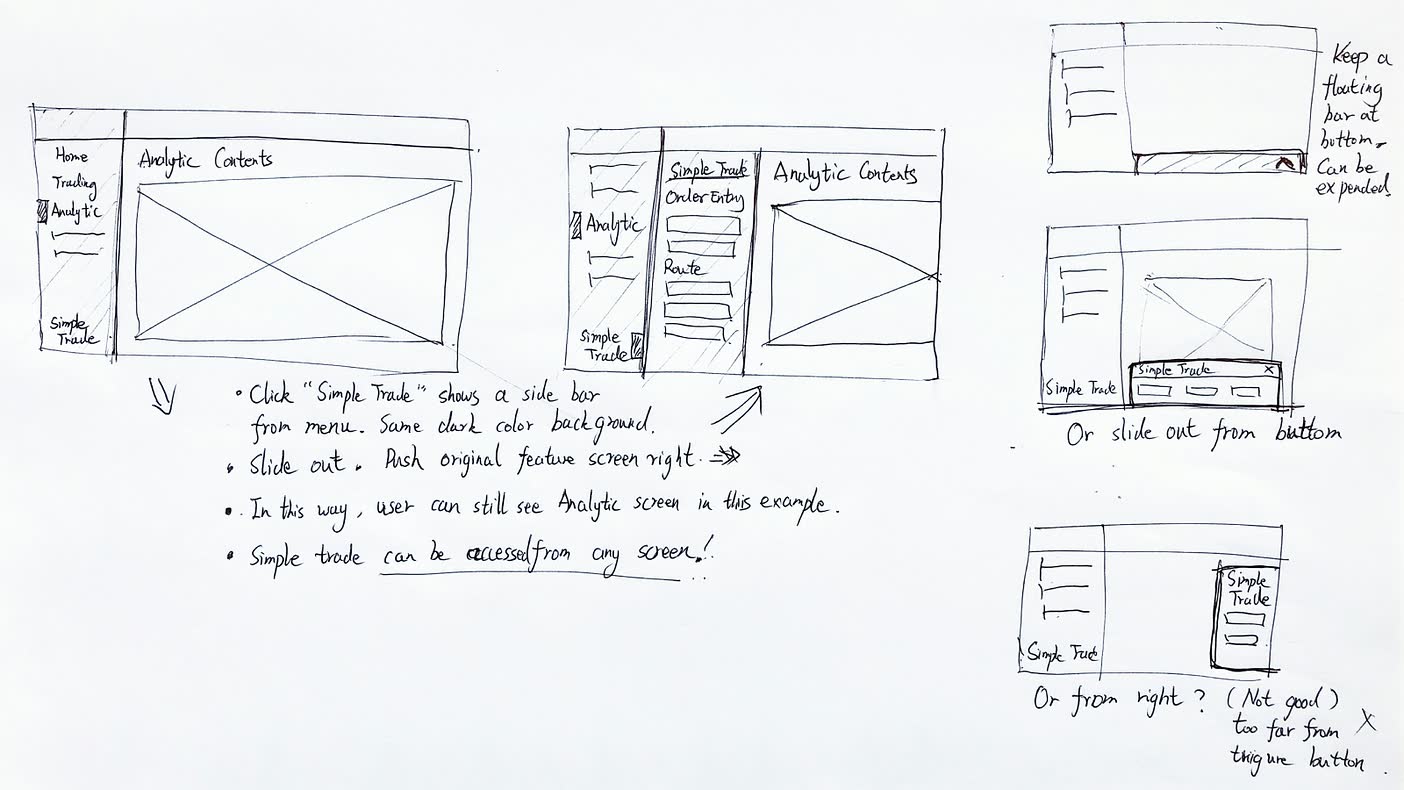 Home
Trading
Analytic
Simple
Trade
Analytic Contents
Analytic
Simple
Trade
Simple Trade
Order Entry
Route
Analytic Contents
• Click "Simple Trade" shows a side bar
from menu. Same dark color background.
• Slide out. Push original feature screen right.
• In this way, user can still see Analytic screen in this example.
• Simple trade can be accessed from any screen!
Keep a
floating
bar at
bottom.
Can be
expended.
Simple Trade
Simple Trade X
Or slide out from buttom
Simple Trade
Simple
Trade
Or from right? (Not good)
too far from X
trigure button.